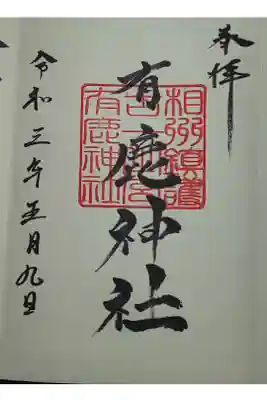 奉拝
有鹿神社
相州鎮護
有鹿神社
令和三年五月九日